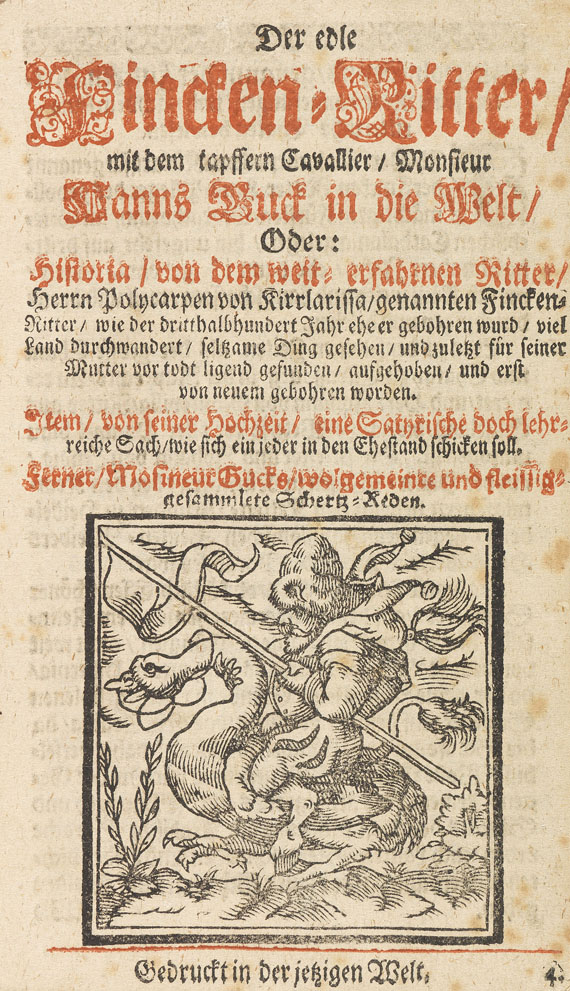 Der edle
Fincken-Ritter/
mit dem tapffern Cavallier / Monsieur
Hanns Guck in die Welt /
Oder:
Historia / von dem weit- erfahrnen Ritter /
Herrn Polycarpen von Kirrlarissa/genannten Fincken-
Ritter / wie der dritthalbhundert Jahr ehe er gebohren wurd / viel
Land durchwandert / seltzame Ding gesehen / und zuletzt für seiner
Mutter vor todt ligend gefunden / aufgehoben / und erst
von neuem gebohren worden.
Item / von seiner Hochzeit / eine Satyrische doch lehr-
reiche Sach/wie sich ein jeder in den Ehestand schicken soll.
Ferner/Mosineur Gucks/wolgemeinte und fleissig-
gesammlete Schertz-Reden.
Gedruckt in der jetzigen Welt,
4.